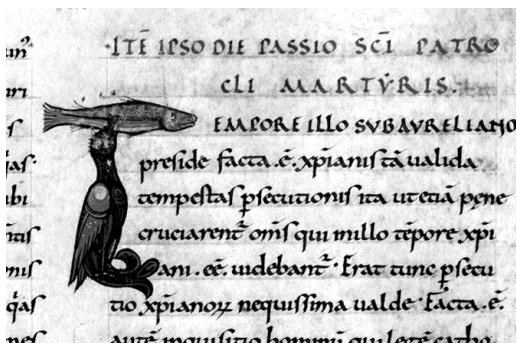 ·ITĒ IPSO DIE PASSIO SCĪ PATRO
CLI MARTYRIS.
EMPORE ILLO SVBAVRELIANO
preside facta. ē. xp̄ianis tā ualida
tempestas p̱secutionis ita ut etiā pęne
cruciarent̄ om̄s qui in illo tēpore xp̄i
ani. eē. uidebant̄· Erat tunc p̱secu
tio xp̄ianoꝝ nequissima ualde· Facta. ē.
autē inquisitio hominū qui legē catho